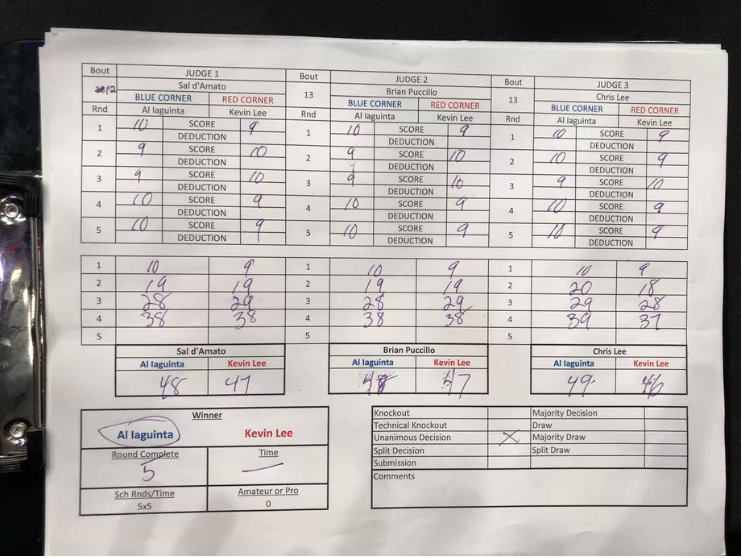 Bout JUDGE 1 Bout JUDGE 2 Bout JUDGE 3
12 Sal d'Amato 13 Brian Puccillo 13 Chris Lee
BLUE CORNER RED CORNER BLUE CORNER RED CORNER BLUE CORNER RED CORNER
Rnd Al Iaguinta Kevin Lee Rnd Al Iaguinta Kevin Lee Rnd Al Iaguinta Kevin Lee
1 10 SCORE 9 1 10 SCORE 9 1 10 SCORE 9
DEDUCTION DEDUCTION DEDUCTION
2 9 SCORE 10 2 9 SCORE 10 2 10 SCORE 9
DEDUCTION DEDUCTION DEDUCTION
3 9 SCORE 10 3 9 SCORE 10 3 9 SCORE 10
DEDUCTION DEDUCTION DEDUCTION
4 10 SCORE 9 4 10 SCORE 9 4 10 SCORE 9
DEDUCTION DEDUCTION DEDUCTION
5 10 SCORE 9 5 10 SCORE 9 5 10 SCORE 9
DEDUCTION DEDUCTION DEDUCTION
1 10 9 1 10 9 1 10 9
2 19 19 2 19 19 2 20 18
3 28 29 3 28 29 3 29 28
4 38 38 4 38 38 4 39 37
5 5 5
Sal d'Amato Brian Puccillo Chris Lee
Al Iaguinta Kevin Lee Al Iaguinta Kevin Lee Al Iaguinta Kevin Lee
48 47 48 47 49 46
Winner
Al Iaguinta Kevin Lee
Round Complete Time
5 —
Sch Rnds/Time Amateur or Pro
5x5 0
Knockout Majority Decision
Technical Knockout Draw
Unanimous Decision X Majority Draw
Split Decision Split Draw
Submission
Comments